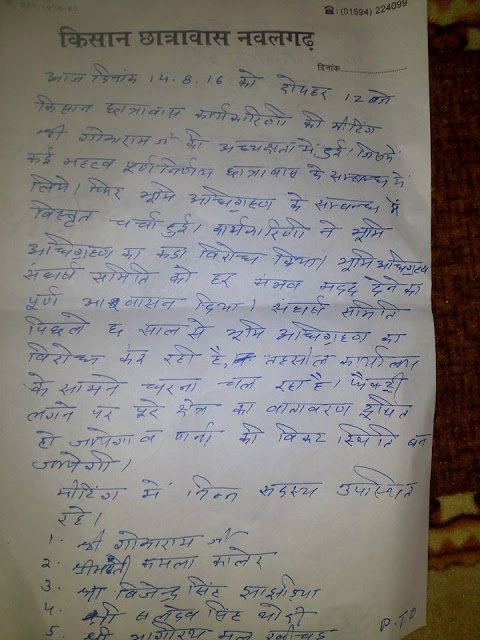 ☎: (01594) 224099
किसान छात्रावास नवलगढ़
दिनांक
आज दिनांक 14.8.16 को दोपहर 12 बजे
किसान छात्रावास कार्यकारिणी की मीटिंग
श्री गोमाराम जी की अध्यक्षता में हुई। जिसमें
कई महत्व पूर्ण निर्णय छात्रावास के सम्बन्ध में
लिये। फिर भूमि अधिग्रहण के सम्बन्ध में
विस्तृत चर्चा हुई। कार्यकारिणी ने भूमि
अधिग्रहण का कडा विरोध किया। भूमि अधिग्रहण
संघर्ष समिति को हर संभव मदद देने का
पूर्ण आश्वासन दिया। संघर्ष समिति
पिछले 6 साल से भूमि अधिग्रहण का
विरोध कर रही है, तहसील कार्यालय
के सामने धरना चल रहा है। फैक्ट्री
लगने पर पूरे क्षेत्र का वातावरण दूषित
हो जायेगा व पानी की विकट स्थिति बन
जायेगी।
मीटिंग में निम्न सदस्य उपस्थित
रहे।
1. श्री गोमाराम जी
2. श्रीमती कमला कालेर
3. श्री विजेन्द्र सिंह
4. श्री बलदेव सिंह
5. श्री भागीरथ मल
P.T.O